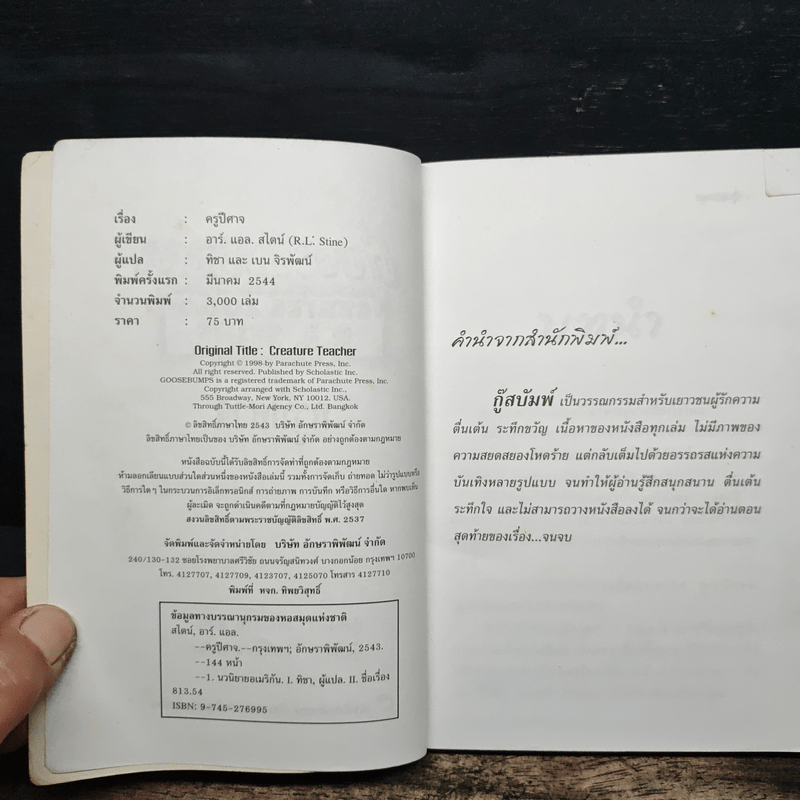 เรื่อง : ครูปีศาจ
ผู้เขียน : อาร์. แอล. สไตน์ (R.L. Stine)
ผู้แปล : ทิชา และ เบน จิรพัฒน์
พิมพ์ครั้งแรก : มีนาคม 2544
จำนวนพิมพ์ : 3,000 เล่ม
ราคา : 75 บาท
Original Title : Creature Teacher
Copyright © 1998 by Parachute Press, Inc.
All right reserved. Published by Scholastic Inc.
GOOSEBUMPS is a registered trademark of Parachute Press, Inc.
Copyright arranged with Scholastic Inc.,
555 Broadway, New York, NY 10012. USA.
Through Tuttle-Mori Agency Co., Ltd. Bangkok
© ลิขสิทธิ์ภาษาไทย 2543 บริษัท อักษราพิพัฒน์ จำกัด
ลิขสิทธิ์ภาษาไทยเป็นของ บริษัท อักษราพิพัฒน์ จำกัด อย่างถูกต้องตามกฎหมาย
หนังสือฉบับนี้ได้รับลิขสิทธิ์การจัดทำที่ถูกต้องตามกฎหมาย
ห้ามลอกเลียนแบบส่วนใดส่วนหนึ่งของหนังสือเล่มนี้ รวมทั้งการจัดเก็บ ถ่ายทอด ไม่ว่ารูปแบบหรือ
วิธีการใด ๆ ในกระบวนการอิเล็กทรอนิกส์ การถ่ายภาพ การบันทึก หรือวิธีการอื่นใด หากพบเห็น
ผู้ละเมิด จะถูกดำเนินคดีตามที่กฎหมายบัญญัติไว้สูงสุด
สงวนลิขสิทธิ์ตามพระราชบัญญัติลิขสิทธิ์ พ.ศ. 2537
จัดพิมพ์และจัดจำหน่ายโดย บริษัท อักษราพิพัฒน์ จำกัด
240/130-132 ซอยโรงพยาบาลศรีวิชัย ถนนจรัญสนิทวงศ์ บางกอกน้อย กรุงเทพฯ 10700
โทร. 4127707, 4127709, 4123707, 4125070 โทรสาร 4127710
พิมพ์ที่ หจก. ทิพยวิสุทธิ์
ข้อมูลทางบรรณานุกรมของหอสมุดแห่งชาติ
สไตน์, อาร์. แอล.
--ครูปีศาจ.--กรุงเทพฯ; อักษราพิพัฒน์, 2543.
--144 หน้า
--1. นวนิยายอเมริกัน. I. ทิชา, ผู้แปล. II. ชื่อเรื่อง
813.54
ISBN: 9-745-276995
คำนำจากสำนักพิมพ์...
กู๊สบัมพ์ เป็นวรรณกรรมสำหรับเยาวชนผู้รักความ
ตื่นเต้น ระทึกขวัญ เนื้อหาของหนังสือทุกเล่ม ไม่มีภาพของ
ความสยดสยองโหดร้าย แต่กลับเต็มไปด้วยอรรถรสแห่งความ
บันเทิงหลายรูปแบบ จนทำให้ผู้อ่านรู้สึกสนุกสนาน ตื่นเต้น
ระทึกใจ และไม่สามารถวางหนังสือลงได้ จนกว่าจะได้อ่านตอน
สุดท้ายของเรื่อง...จนจบ